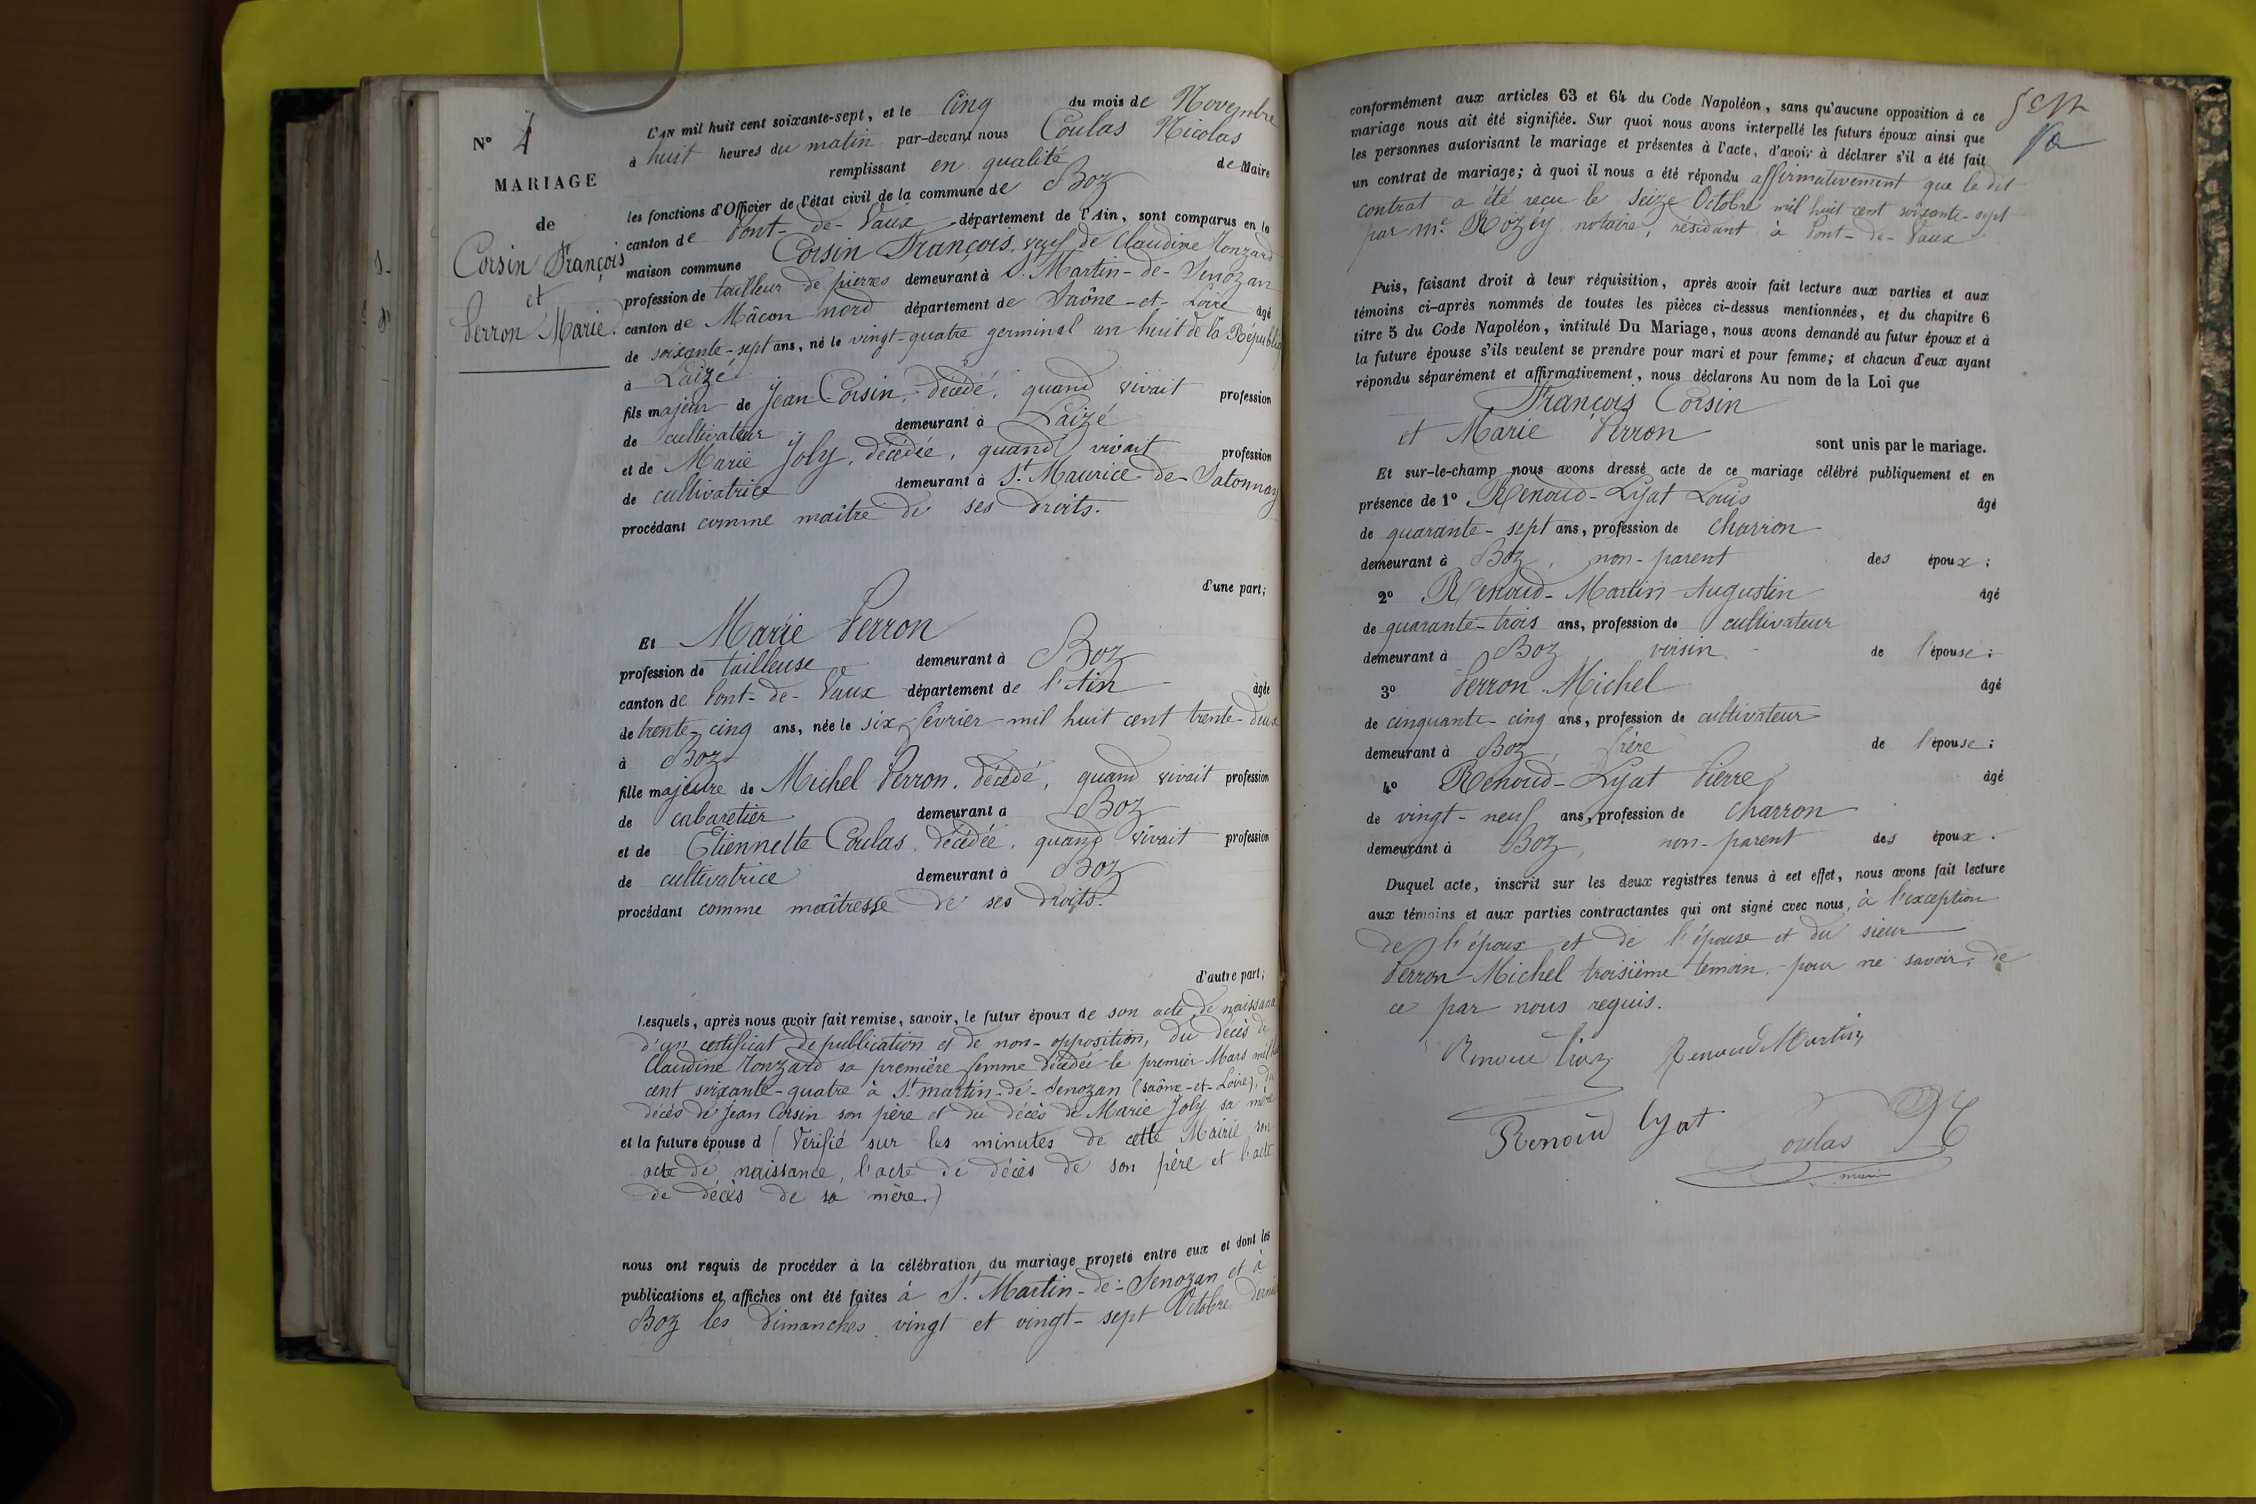 N° 4
MARIAGE
de
Corsin François
et
Perron Marie.
L'AN mil huit cent soixante-sept, et le cinq du mois de Novembre
à huit heures du matin par-devant nous Coulas Nicolas
remplissant en qualité de Maire
les fonctions d'Officier de l'état civil de la commune de Boz
canton de Pont-de-Vaux département de l'Ain, sont comparus en la
maison commune Corsin François, veuf de Claudine
profession de tailleur de pierres demeurant à St Martin-de-Senozan
canton de Mâcon nord département de Saône-et-Loire âgé
de soixante-sept ans, né le vingt-quatre germinal an huit de la République
à Laizé
fils majeur de Jean Corsin, décédé, quand vivait profession
de cultivateur demeurant à Laizé
et de Marie Joly, décédée, quand vivait profession
de cultivatrice demeurant à St Maurice de Satonnay
procédant comme maître de ses droits.
d'une part;
Et Marie Perron
profession de tailleuse demeurant à Boz
canton de Pont-de-Vaux département de l'Ain âgée
de trente-cinq ans, née le six février mil huit cent trente-deux
à Boz
fille majeure de Michel Perron, décédé, quand vivait profession
de cabaretier demeurant à Boz
et de Etiennette Coulas, décédée, quand vivait profession
de cultivatrice demeurant à Boz
procédant comme maîtresse de ses droits.
d'autre part;
Lesquels, après nous avoir fait remise, savoir, le futur époux de son acte de naissance
d'un certificat de publication et de non-opposition, du décès de
Claudine sa première femme décédée le premier Mars mil huit
cent soixante-quatre à St martin-de-Senozan (Saône-et-Loire), du
décès de Jean Corsin son père et du décès de Marie Joly sa mère
et la future épouse d (Vérifié sur les minutes de cette Mairie son
acte de naissance, l'acte de décès de son père et l'acte
de décès de sa mère.)
nous ont requis de procéder à la célébration du mariage projeté entre eux et dont les
publications et affiches ont été faites à St Martin-de-Senozan et à
Boz les dimanches vingt et vingt-sept Octobre dernier
conformément aux articles 63 et 64 du Code Napoléon, sans qu'aucune opposition à ce
mariage nous ait été signifiée. Sur quoi nous avons interpellé les futurs époux ainsi que
les personnes autorisant le mariage et présentes à l'acte, d'avoir à déclarer s'il a été fait
un contrat de mariage; à quoi il nous a été répondu affirmativement que le dit
contrat a été reçu le seize Octobre mil huit cent soixante-sept
par Me Rozey notaire, résidant à Pont-de-Vaux
Sept
Puis, faisant droit à leur réquisition, après avoir fait lecture aux parties et aux
témoins ci-après nommés de toutes les pièces ci-dessus mentionnées, et du chapitre 6
titre 5 du Code Napoléon, intitulé Du Mariage, nous avons demandé au futur époux et à
la future épouse s'ils veulent se prendre pour mari et pour femme; et chacun d'eux ayant
répondu séparément et affirmativement, nous déclarons Au nom de la Loi que
François Corsin
et Marie Perron sont unis par le mariage.
Et sur-le-champ nous avons dressé acte de ce mariage célébré publiquement et en
présence de 1° Renoud-Lyat Louis âgé
de quarante-sept ans, profession de charron
demeurant à Boz, non-parent des époux;
2° Renoud-Martin Augustin âgé
de quarante-trois ans, profession de cultivateur
demeurant à Boz voisin de l'épouse;
3° Perron Michel âgé
de cinquante-cinq ans, profession de cultivateur
demeurant à Boz, frère de l'épouse;
4° Renoud-Lyat Pierre âgé
de vingt-neuf ans, profession de charron
demeurant à Boz, non-parent des époux.
Duquel acte, inscrit sur les deux registres tenus à cet effet, nous avons fait lecture
aux témoins et aux parties contractantes qui ont signé avec nous, à l'exception
de l'époux et de l'épouse et du sieur
Perron Michel troisième témoin, pour ne savoir, de
ce par nous requis.
Renoud Martin
Renoud Lyat Coulas
maire